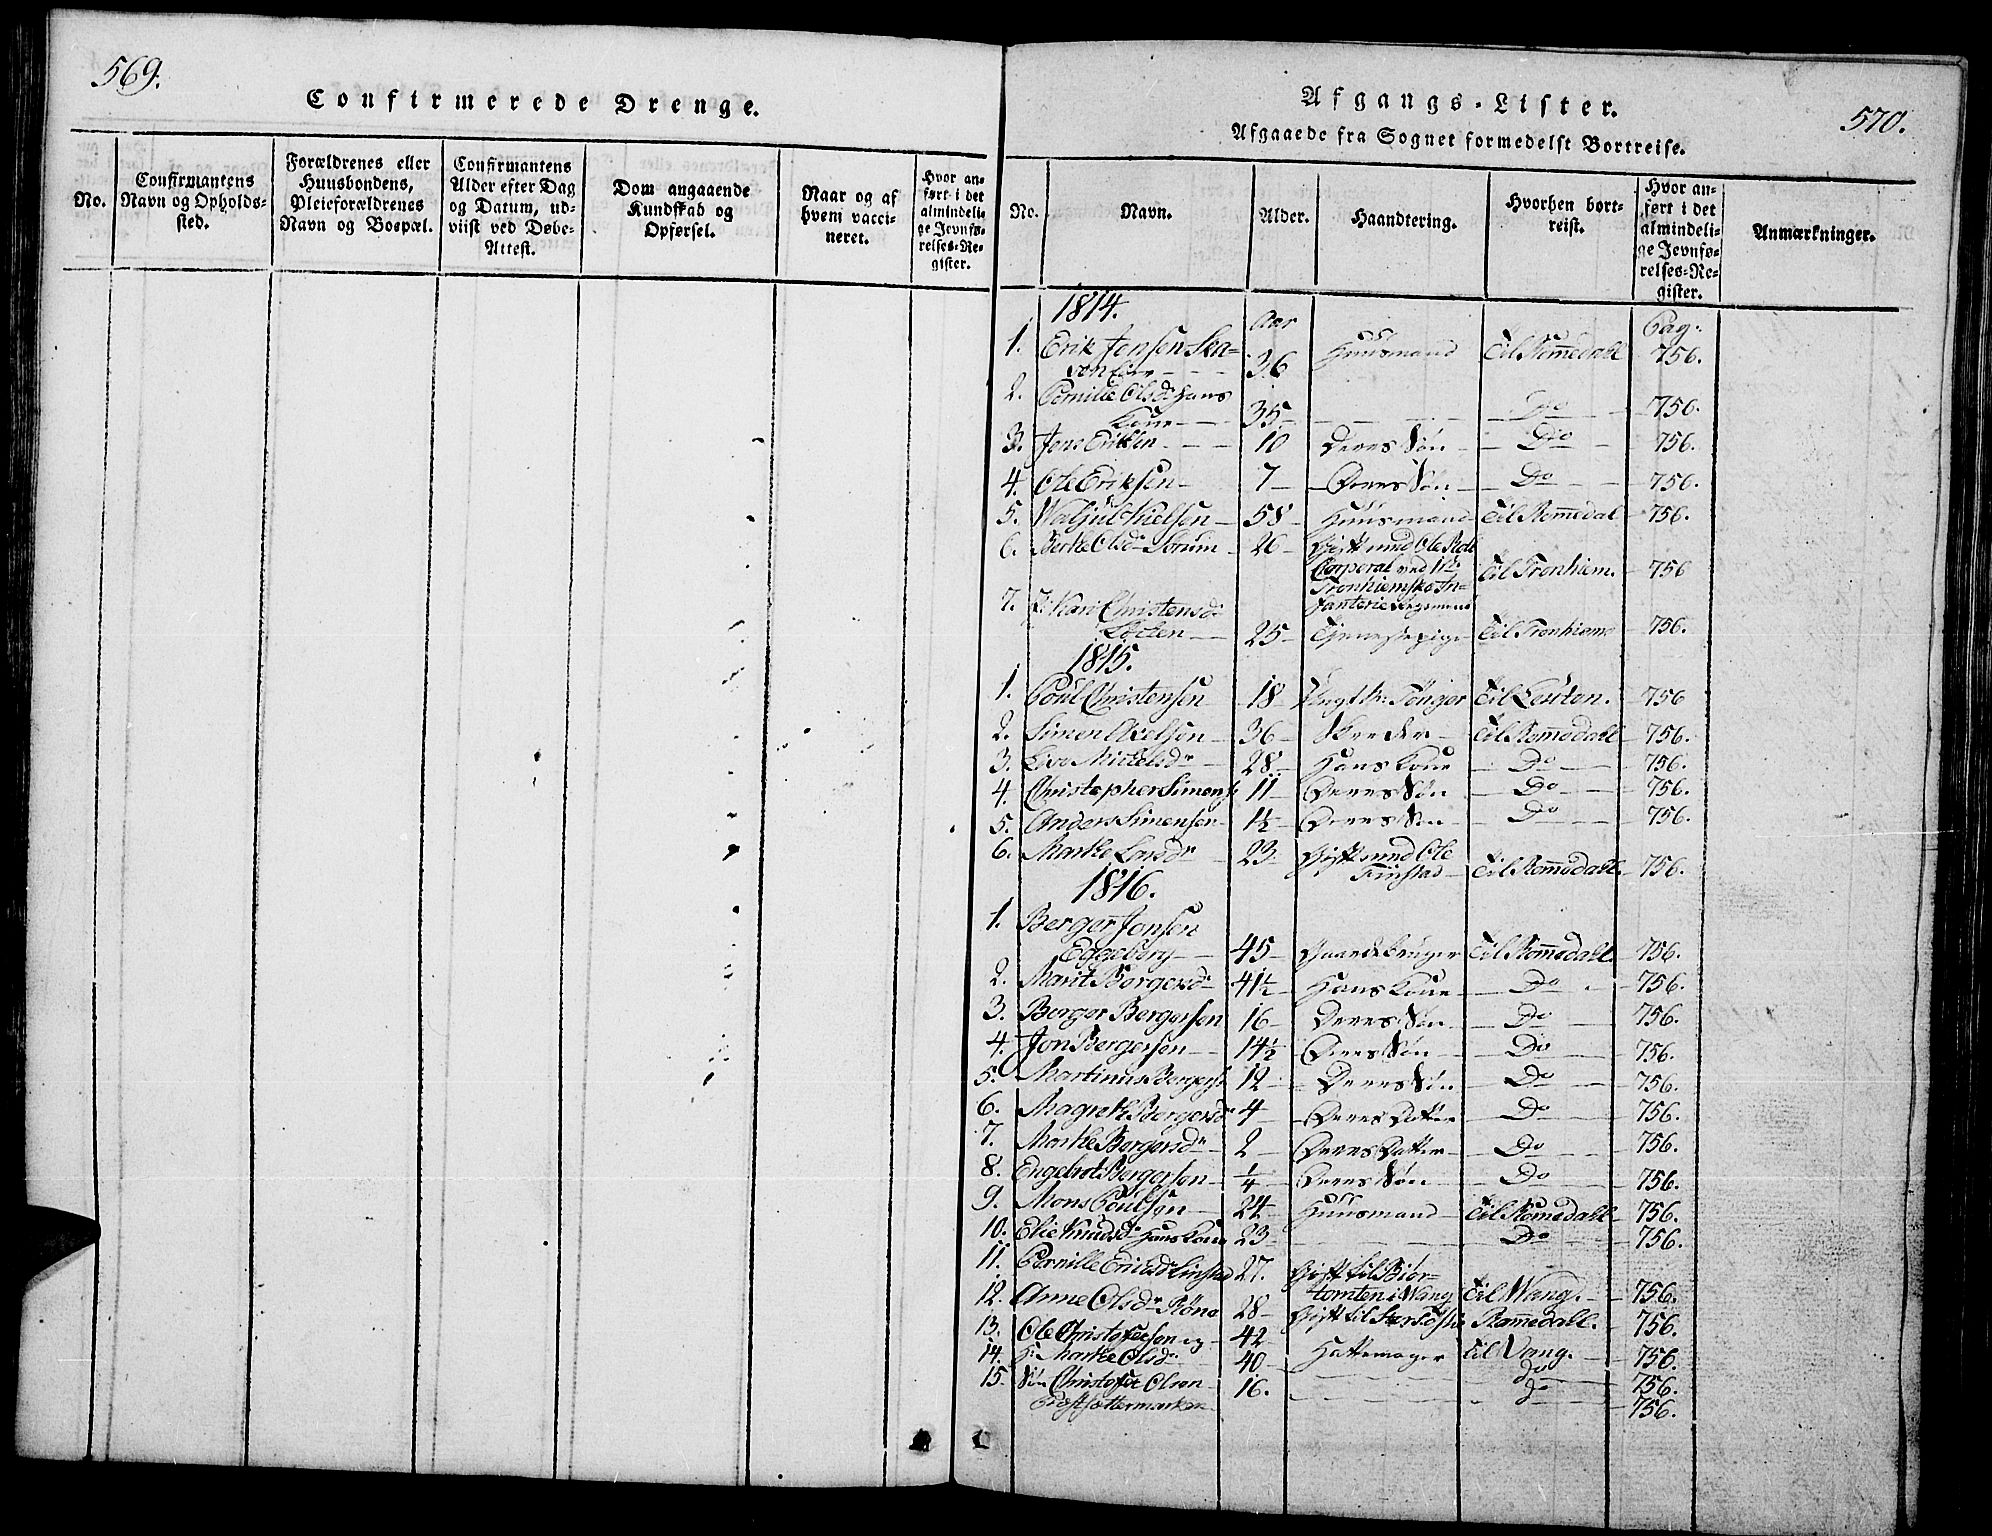 569.
Confirmerede Drenge.
No.
Confirmantens
Navn og Opholds-
sted.
Forældrenes eller
Huusbondens,
Pleieforældrenes
Navn og Bospæl.
Confirmantens
Alder efter Dag
og Datum, ud-
viist ved Døbe-
Attest.
Dom angaaende
Kundskab og
Opførsel.
Naar og af
hvem vacci-
neret.
Hvor an-
ført i det
almindeli-
ge Jevnfø-
relses-Re-
gister.
Afgangs-Lister.
570.
Afgaaede fra Sognet formedelst Bortreise.
No.
Navn.
Alder.
Haandtering.
Hvorhen bort-
reist.
Hvor an-
ført i det
almindeli-
ge Jevnfø-
relses-Re-
gister.
Anmærkninger.
1814.
Aar
Pag:
1. Erik Jonsen Ska- 36 Huusmand Til Romedahl 756.
2. Pernille Olsdr Hans
Kone 35 Do 756.
3. Jens Eriksen 10 Deres Søn Do 756.
4. Ole Eriksen 7 Deres Søn Do 756.
5. Nielsen 58 Huusmand Til Romedal 756.
6. Berthe Olsdr Sorum 26 Gift med Ole
Corporal ved
Tronhiemske In- Til Tronhiem. 756
fanterie Regiment
7. Kari Christensdr
25 Tienestepige Til Tronhiem 756.
1815.
1. Poul Christensen 18 Til Leuten. 756
2. Simen Axelsen 36 Skreder Til Romedahl 756.
3. Lisve Mickelsdr 28 Hans Kone Do 756.
4. Christopher Simens 11 Deres Søn Do 756.
5. Anders Simensen 1½ Deres Søn Do 756.
6. Marthe Larsdr 23 Gift med Ole
Finstad Til Romedahl. 756.
1816.
1. Berger Jonsen
Eggeberg 45 Gaardbruger Til Romedahl 756.
2. Marit Bergersdr 41½ Hans Kone Do 756.
3. Berger Bergersen 16 Deres Søn Do 756.
4. Jon Bergersen 14½ Deres Søn Do 756.
5. Martinus Bergers 12 Deres Søn Do 756.
6. Magreth Bergersdr 4 Deres Datter Do 756.
7. Marthe Bergersdr 2 Deres Datter Do 756.
8. Engebret Bergersen ¼ Deres Søn Do 756.
9. Mons Poulsen 24 Huusmand Til Romedahl 756.
10. Elie Knudsdr Hans Kone 23 Do 756.
11. Pernille Ericsdr Linstad 27. Gift til Biør-
tomten i Wang Til Wang. 756.
12. Anne Olsdr Røne 28 Gift til Romedahl. 756.
13. Ole Christofersen og 42 Hattemager Til Vang. 756.
14. H. Marthe Olsdr 40 do 756.
15. Søn Christofer Olsen 16. do 756.